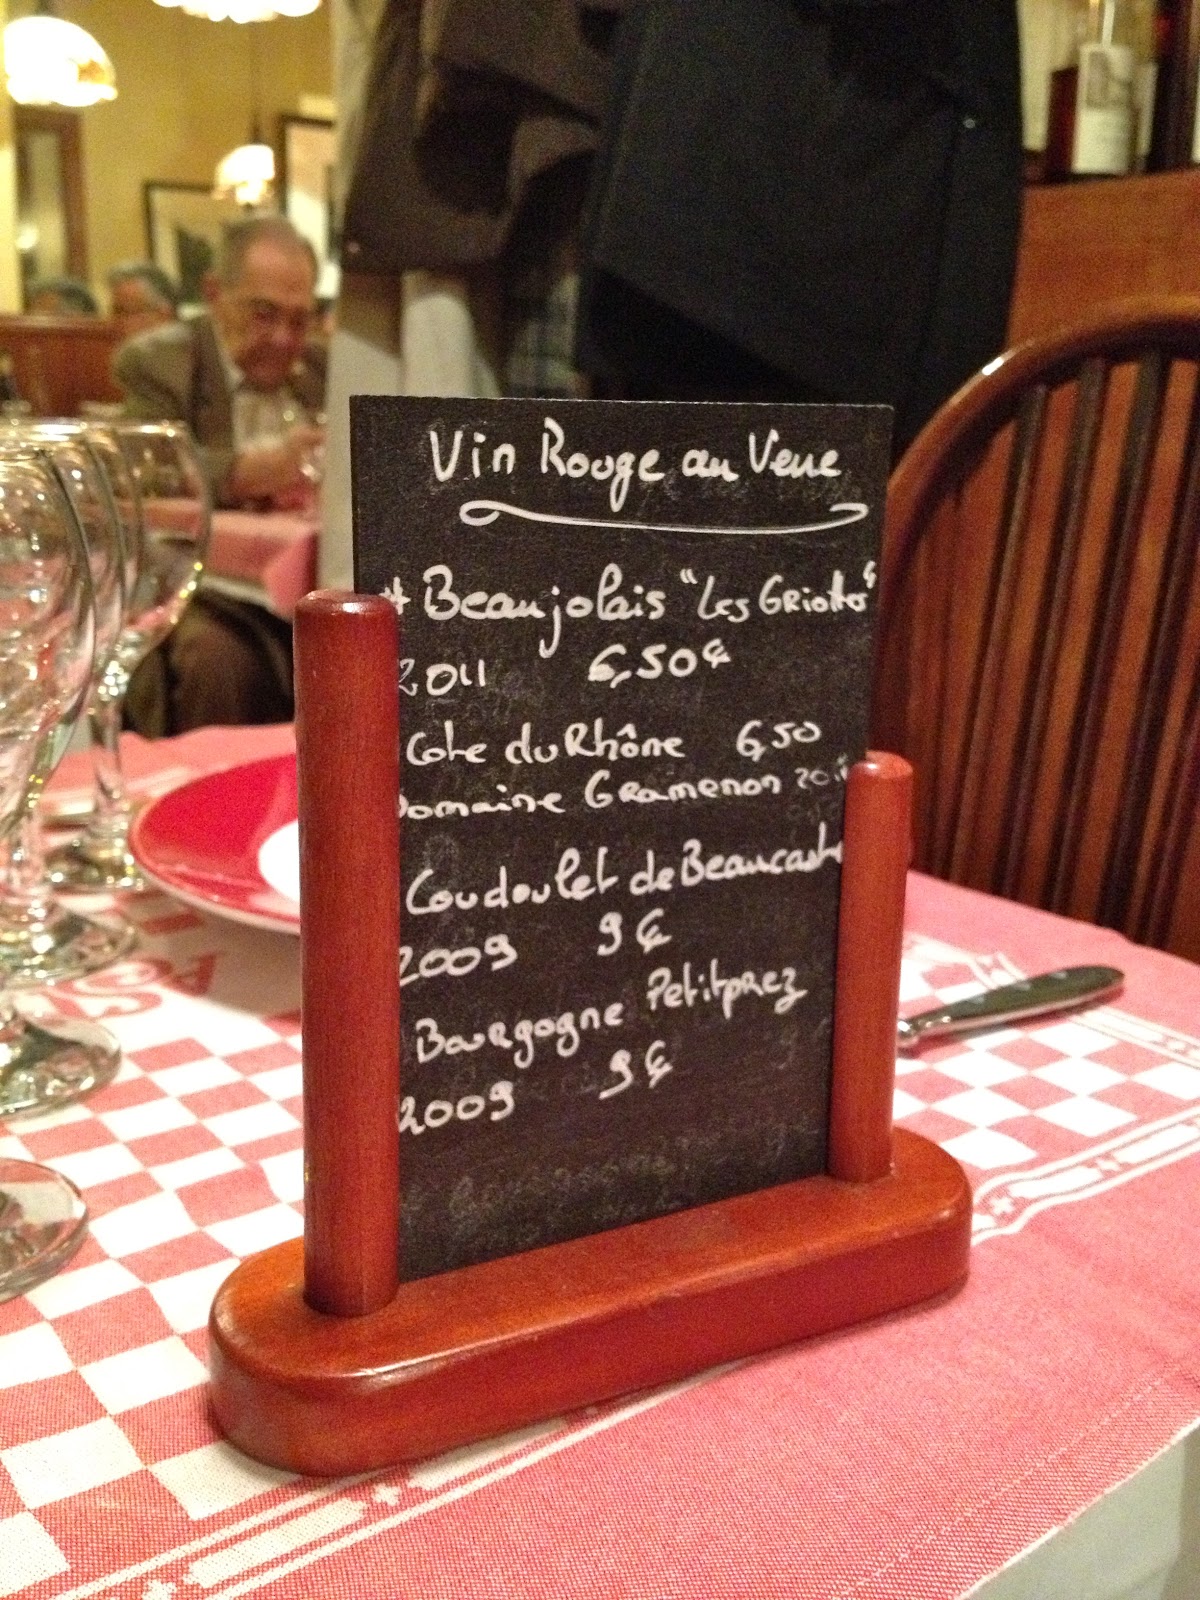 Vin Rouge au Verre
# Beaujolais "Les Griottes"
2011 6,50€
Cote du Rhône 6,50
Domaine Gramenon
Coudoulet de Beaucastel
2009 9 €
Bourgogne Petitprez
2009 9 €